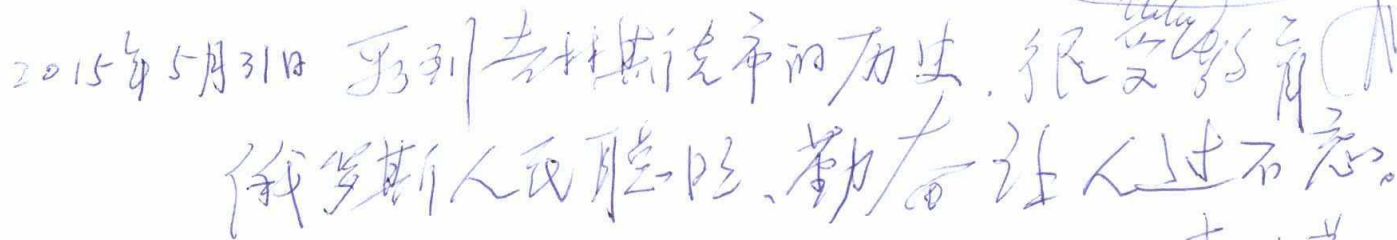 2015年5月31日 看到吉林斯克市的历史.很受教育
俄罗斯人民聪明、勤奋让人过不忘。